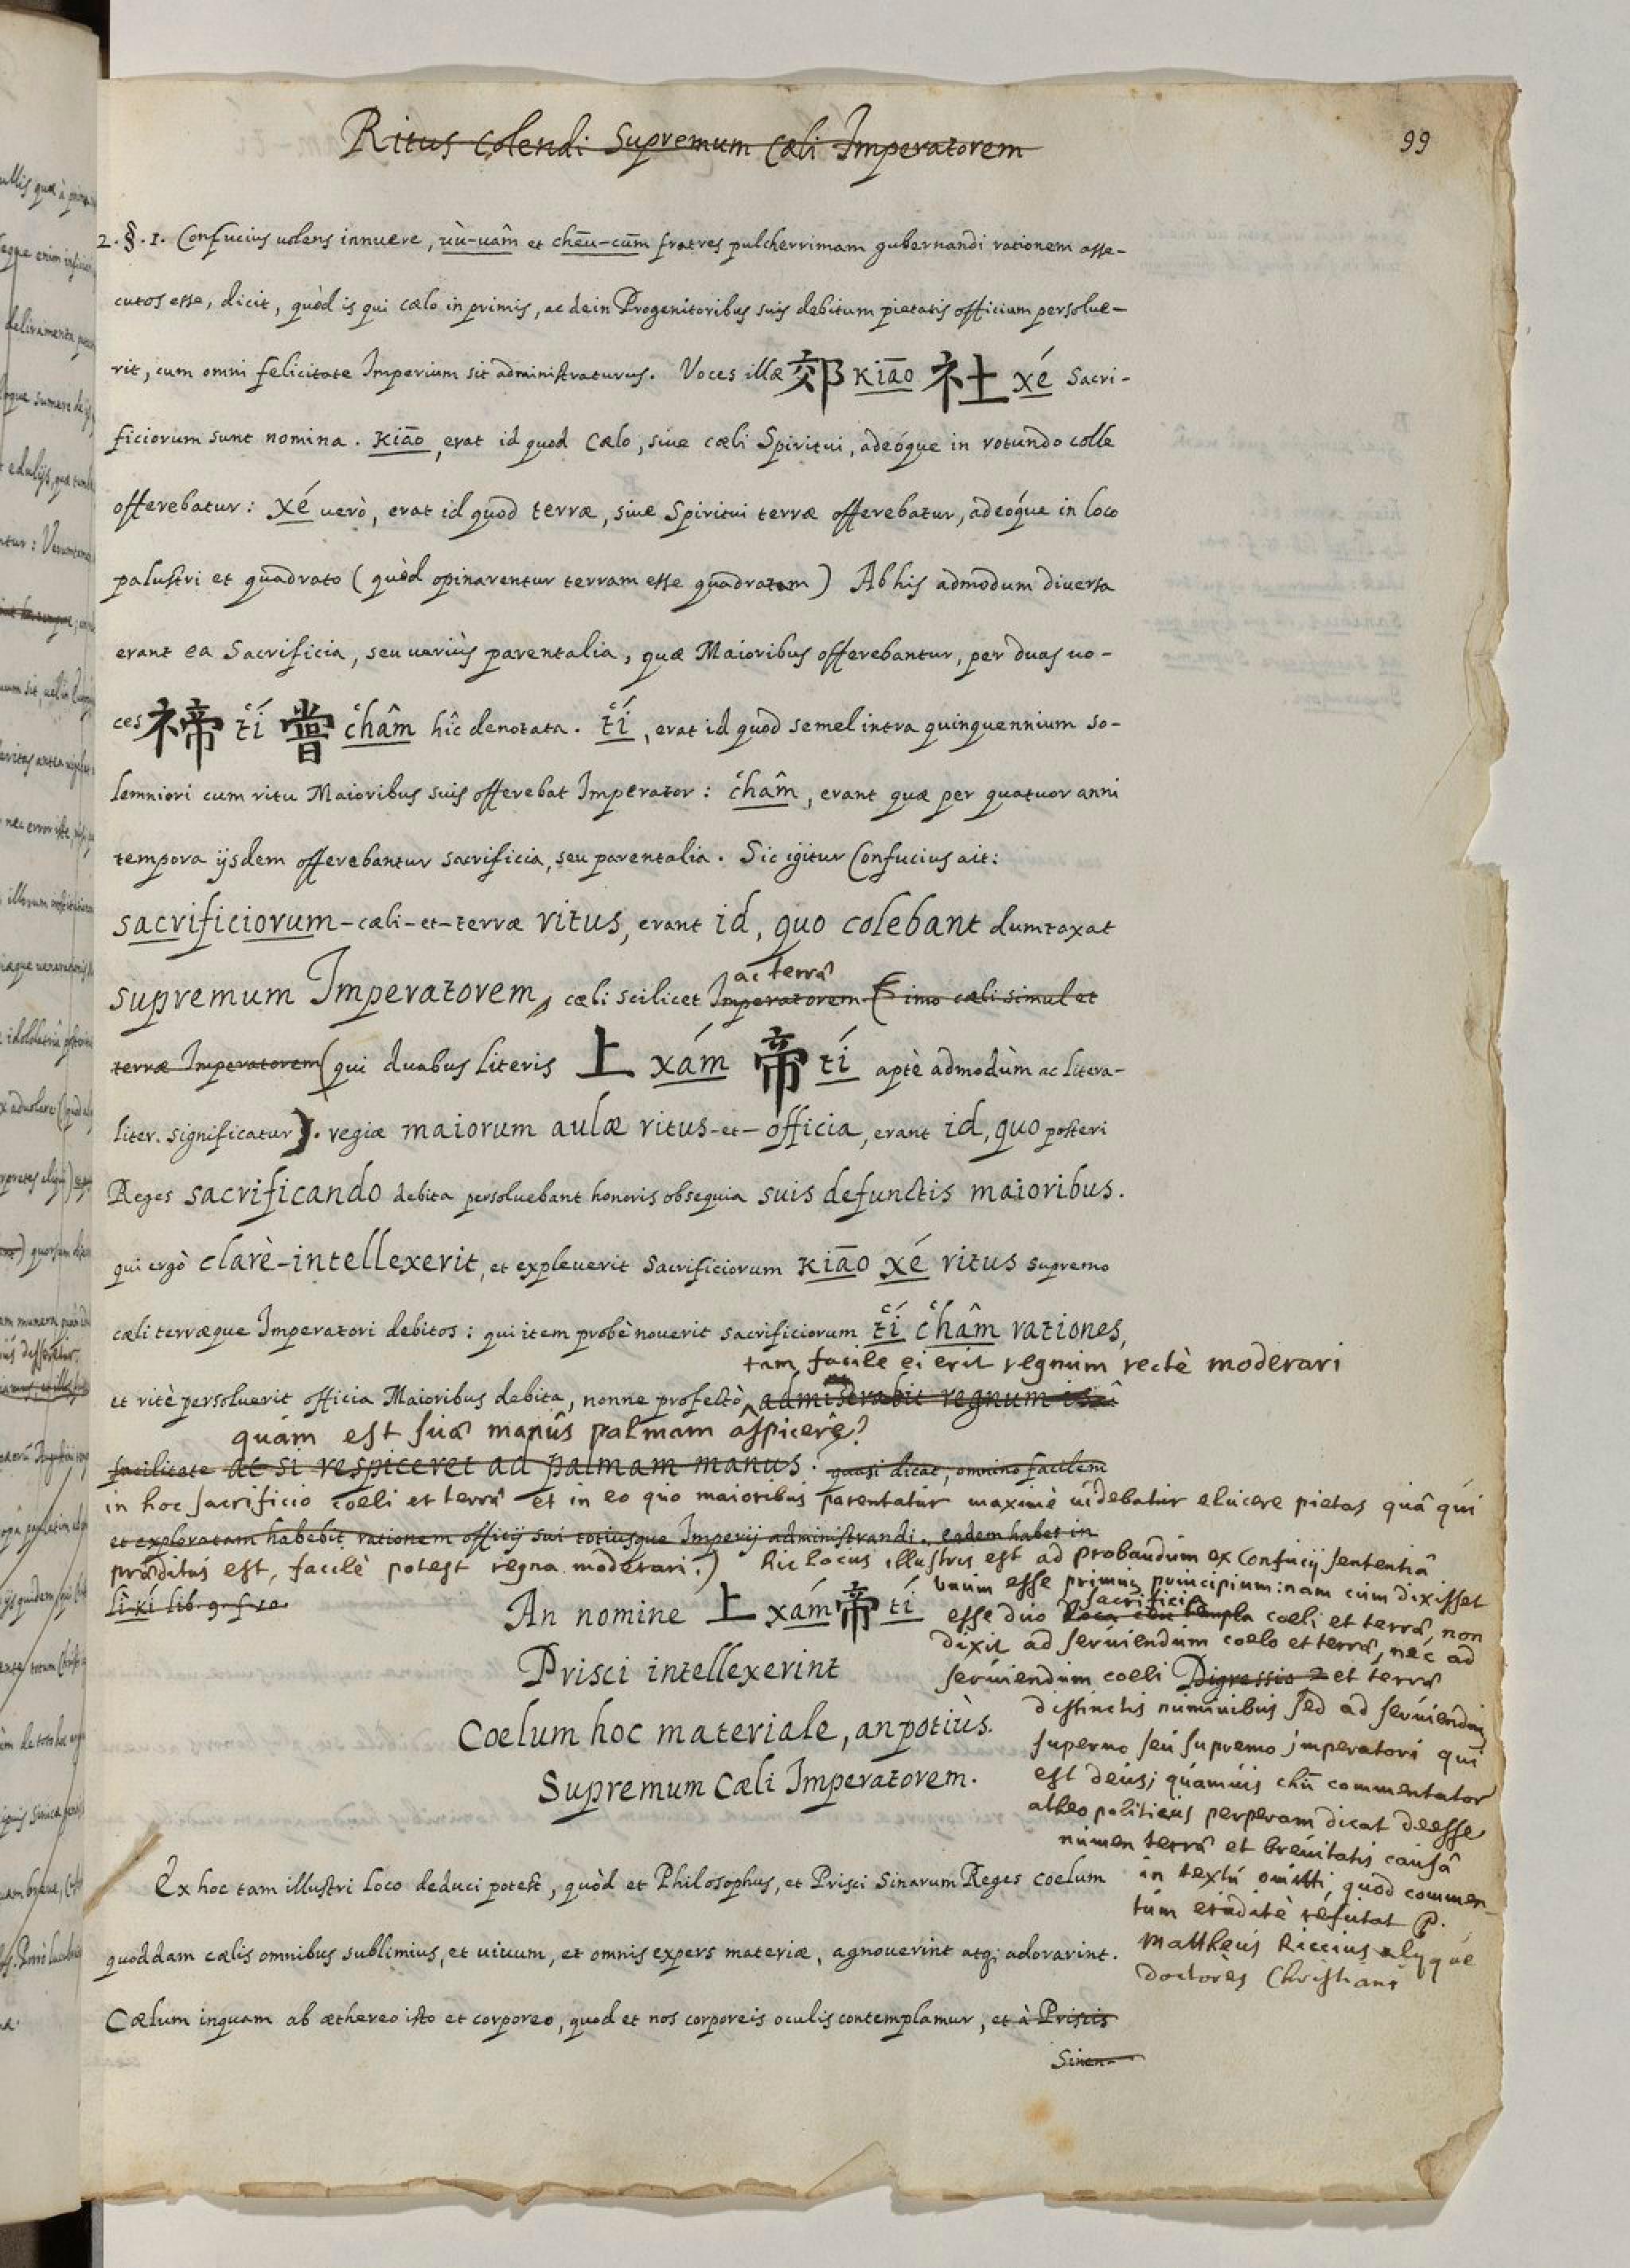 Ritus colendi Supremum Cæli Imperatorem
99
2. §. 1. Confucius volens innuere, uù-uâm et chēu-cūm fratres pulcherrimam gubernandi rationem asse-
cutos esse, dicit, quòd is qui cælo in primis, ac dein Progenitoribus suis debitum pietatis officium persolue-
rit, cum omni felicitate Imperium sit administraturus. Voces illæ 郊 Kiāo 社 xé Sacri-
ficiorum sunt nomina. Kiāo, erat id quod Cælo, siue cæli Spiritui, adeóque in rotundo colle
offerebatur: Xé uerò, erat id quod terræ, siue Spiritui terræ offerebatur, adeóque in loco
palustri et quadrato (quòd opinarentur terram esse quadratam) Ab his admodum diuersa
erant ea Sacrificia, seu ueriùs parentalia, quæ Maioribus offerebantur, per duas uo-
ces 禘 tí 嘗 châm hîc denotata. tí, erat id quod semel intra quinquennium so-
lemniori cum ritu Maioribus suis offerebat Imperator: châm, erant quæ per quatuor anni
tempora ijsdem offerebantur sacrificia, seu parentalia. Sic igitur Confucius ait:
sacrificiorum-cæli-et-terræ ritus, erant id, quo colebant dumtaxat
ac terræ
supremum Imperatorem, cæli scilicet Imperatorem (imo cæli simul et
terræ Imperatorem (qui duabus literis 上 xám 帝 tí aptè admodùm ac litera-
liter significatur). regiæ maiorum aulæ ritus-et-officia, erant id, quo posteri
Reges sacrificando debita persoluebant honoris obsequia suis defunctis maioribus.
qui ergò clarè-intellexerit, et expleuerit Sacrificiorum Kiāo xé ritus supremo
cæli terræque Imperatori debitos: qui item probè nouerit sacrificiorum tí châm rationes,
tam facile ei erit regnum rectè moderari
et ritè persoluerit officia Maioribus debita, nonne profectò administrabit regnum is
quàm est suæ manûs palmam aspicere?
facilitate ac si respiceret ad palmam manus. quasi dicat, omnino facilem
in hoc sacrificio coeli et terræ et in eo quo maioribus parentatur maximè uidebatur elucere pietas quâ qui
et exploratam habebit rationem officij sui totiusque Imperij administrandi. eadem habes in
præditus est, facilè potest regna moderari.) hic locus illustris est ad probandum ex Confucij sententiâ
li kí lib. 9. f. 10.
unum esse primum principium: nam cùm dixisset
An nomine 上 xám 帝 tí
sacrificia
esse duo loca seu templa coeli et terræ, non
dixit ad seruiendum coelo et terræ, nec ad
Prisci intellexerint
seruiendum coeli Digressio 2 et terræ
Coelum hoc materiale, an potiùs
distinctis numinibus sed ad seruiendum
superno seu supremo imperatori qui
Supremum Cæli Imperatorem.
est deus; quamuis chū commentator
atheopoliticus perperam dicat deesse
numen terræ et breuitatis causâ
in textu omitti, quod commen-
tum eruditè refutat P.
Mattheus Riccius alijque
doctores Christiani
Ex hoc tam illustri loco deduci potest, quòd et Philosophus, et Prisci Sinarum Reges coelum
quoddam cælis omnibus sublimius, et uiuum, et omnis expers materiæ, agnouerint atq; adorarint.
Cælum inquam ab æthereo isto et corporeo, quod et nos corporeis oculis contemplamur, et à Priscis
Sinen-